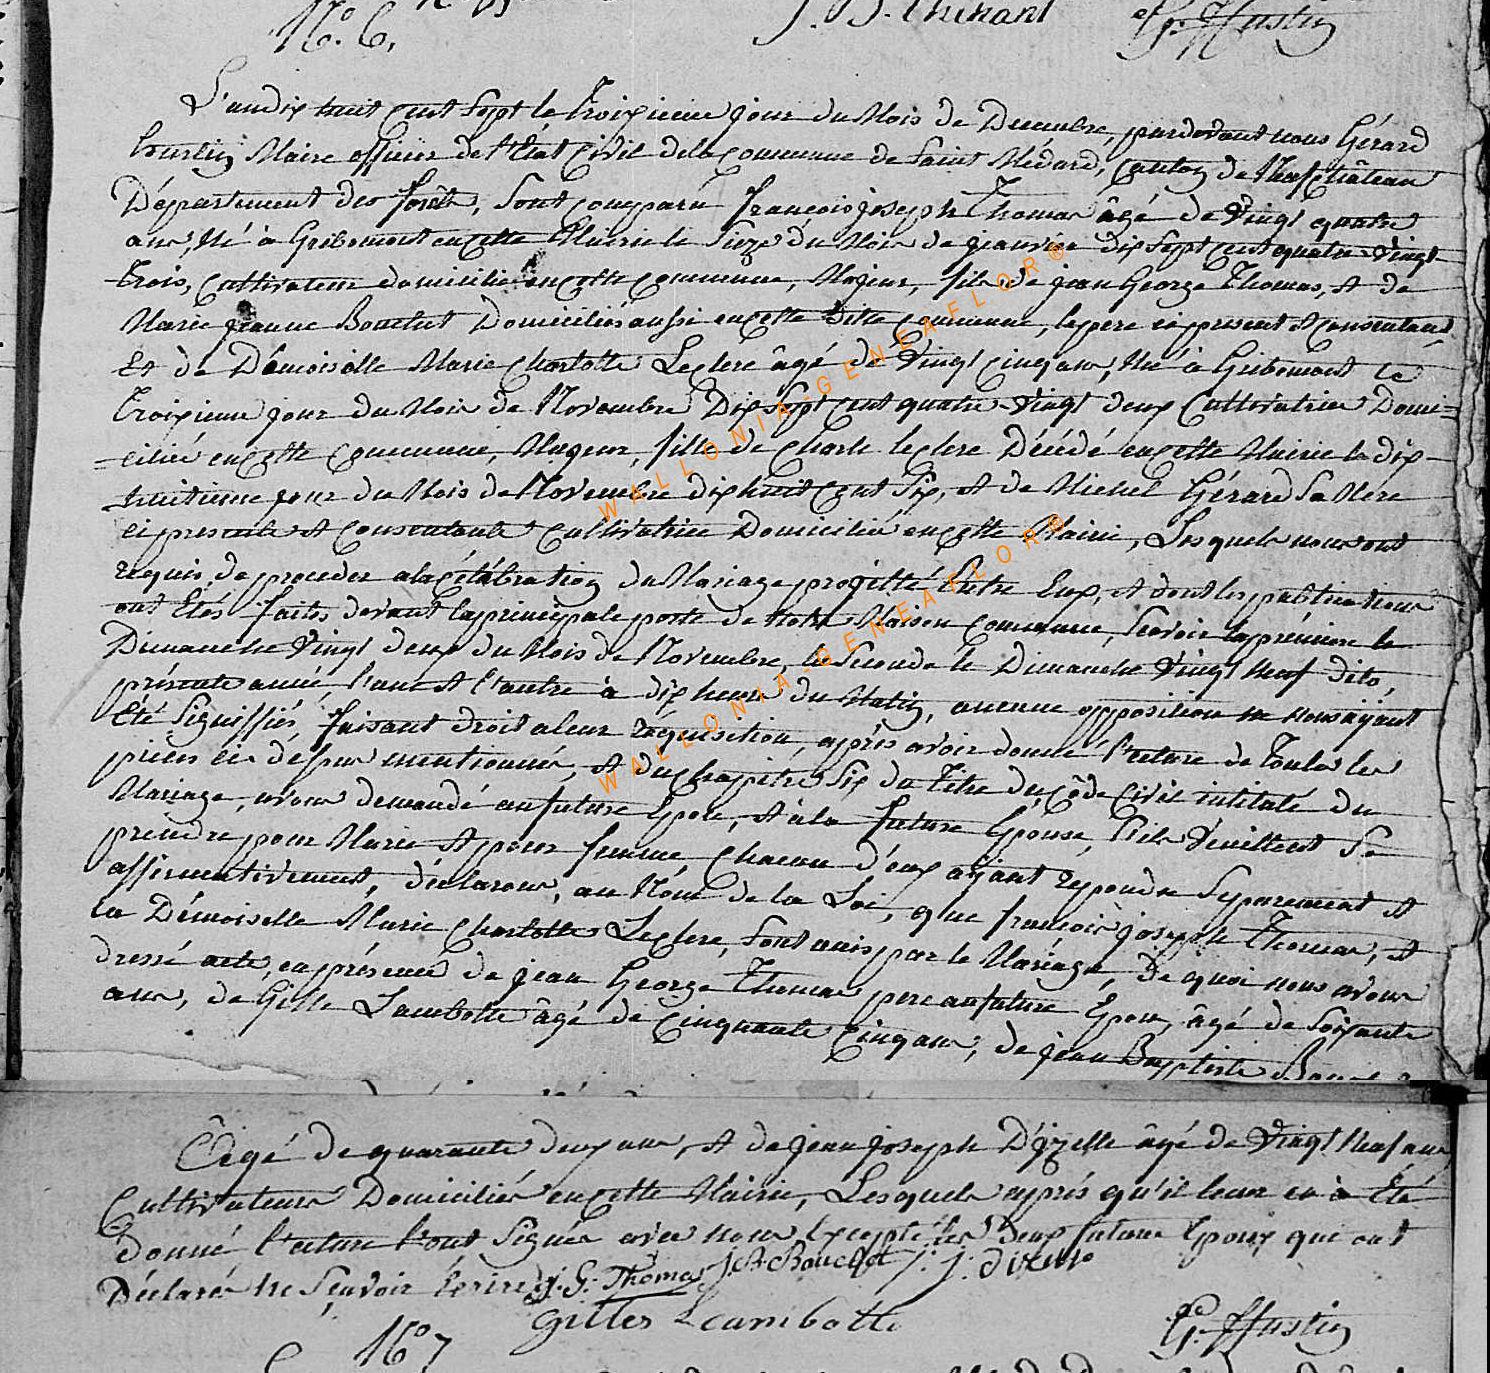 N.º 6.
J. B. Thirant
L'an dix huit cent Sept le Troixieme jour du Mois de Decembre, pardevant nous Gérard
Maire officier de l'État Civil de la commune de Saint Médard, Canton de Neufchâteau
Département des forêts, Sont comparu françois joseph Thomas âgé de Vingt quatre
ans, Né à Gribomont en cette Mairie le Sieze du Mois de janvier dix Sept cent quatre Vingt
trois, Cultivateur domicilié en cette commune, Majeur, fils de jean George Thomas, et de
Marie jeanne Bouchut Domiciliés aussi en cette ditte commune, le pere ci present et consentant
Et de Démoiselle Marie Charlotte Leclere âgé de Vingt Cinq ans, Né à Gribomont le
Troixieme jour du Mois de Novembre Dix Sept cent quatre Vingt deux Cultivatrice Domi=
=ciliée en cette commune, Mageur, fille de Charle leclere Décédé en cette Mairie le dix-
huitieme jour du Mois de Novembre dix huit cent Six, et de Michel Gérard Sa Mere
ci presente et consentante cultivatrice Domicilié en cette Mairie, Lesquels nous ont
requis de proceder a la célébration du Mariage progetté Entre Eux, et dont les publications
ont Etés faites devant la principale porte de notre Maison commune, Scavoir la prémiere le
Dimanche Vingt deux du Mois de Novembre, la Seconde le Dimanche Vingt neuf dito,
présente année, l'une et l'autre à dix heures du Matin, aucune opposition ne nous ayant
Eté Signiffiés, faisant droit a leur réquisition, après avoir donné l'ecture de Toutes les
piéces ci-dessus mentionnés, et du chapitre Six du Titre du Côde Civil intitulé du
Mariage, avons demandé au future Epoux, et à la future Epouse, S'ils Veuillent Se
prendre pour Marie et pour femme, Chacun d'eux ayant répondu Séparement et
affirmativement, déclarons, au Nom de la Loi, que françois joseph Thomas, et
la Démoiselle Marie Charlotte Leclere, Sont unis par le Mariage, De quoi nous avons
dressé acte, en présence de jean George Thomas pere au future Epoux, âgé de Soixante
ans, de Gille Lambotte âgé de Cinquante Cinq ans, de jean Baptiste
Âgé de quarante deux ans, et de jean joseph D'izelle âgé de Vingt Neuf ans
Cultivateurs Domiciliés en cette Mairie, Lesquels après qu'il leur en à Eté
donné l'ecture l'ont Signés avec nous, Excepté les Deux future Epoux qui ont
Déclarés ne Scavoir écrire J. G. Thomas J. B. Bouchot J. J. dizelle
gilles Lambotte
N.º 7
WALLONIA-GENEAFLOR®
WALLONIA-GENEAFLOR®